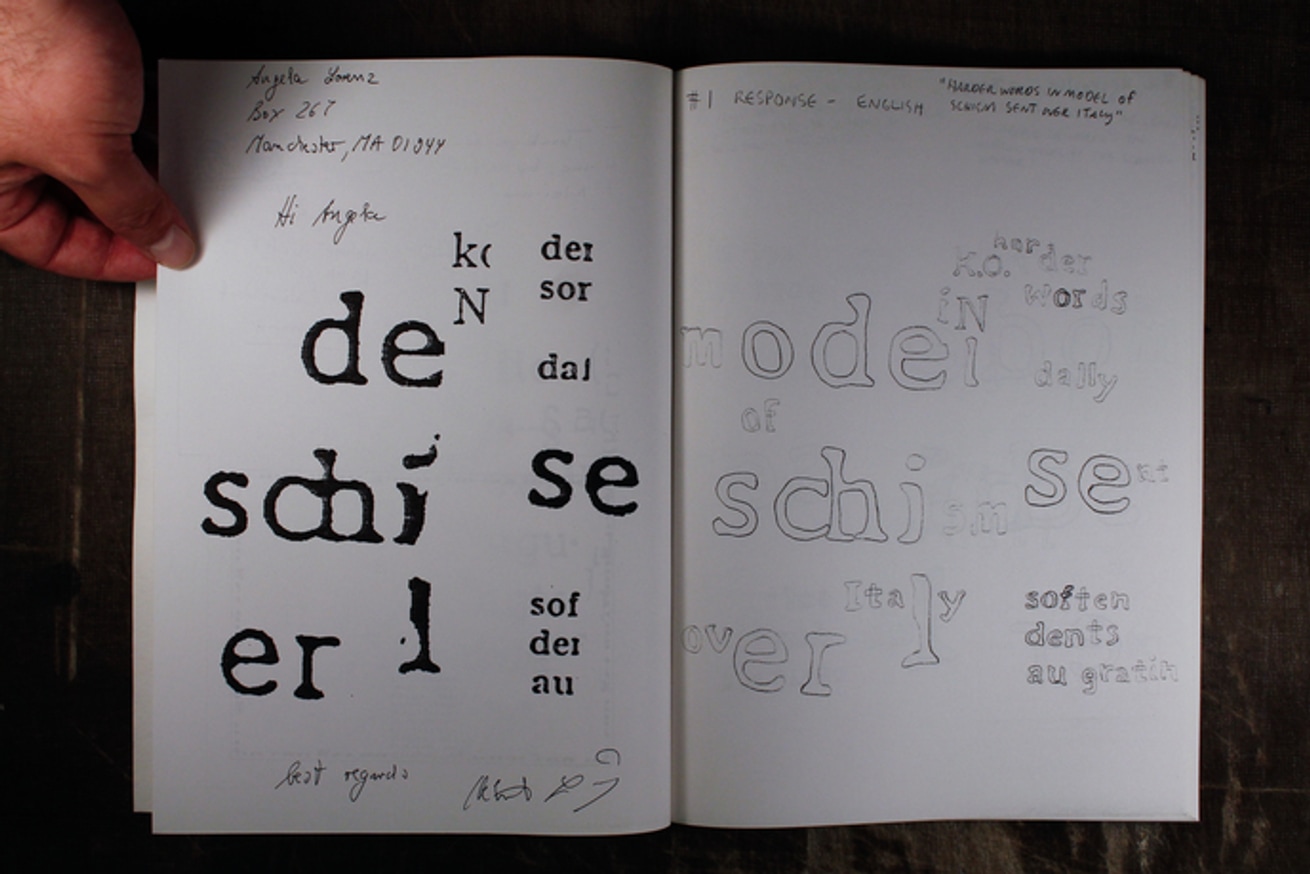 Angela Lorenz
Box 267
Manchester, MA 01944
Hi Angela
de
k
N
der
sor
dal
schi
se
er l
sof
der
au
best regards
#1 RESPONSE - ENGLISH
"HARDER WORDS IN MODEL OF
SCHISM SENT OVER ITALY"
harder
K.O.
iN
words
model
dally
of
schism
sent
Italy
over
soften
dents
au gratin